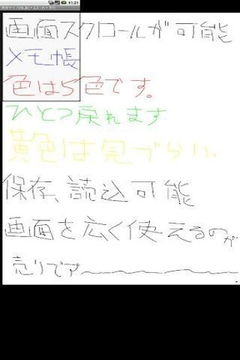 画面スクロールが可能
メモ帳
色は5色です。
ひとつ戻れます
黄色は見づらい。
保存、読込可能
画面を広く使えるのが
売りでアー